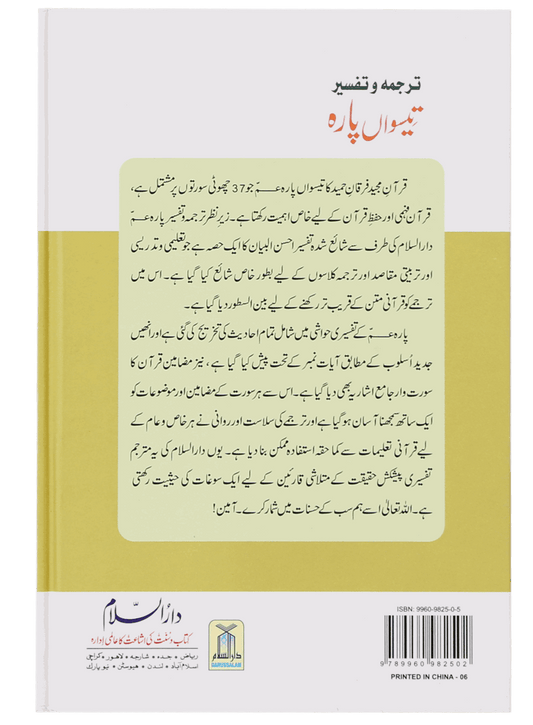 ترجمہ و تفسیر
تیسواں پارہ
قرآن مجید فرقانِ حمید کا تیسواں پارہ عمّ جو 37 چھوٹی سورتوں پر مشتمل ہے،
قرآن فہمی اور حفظِ قرآن کے لیے خاص اہمیت رکھتا ہے۔ زیرِ نظر ترجمہ و تفسیر پارہ عمّ
دارالسلام کی طرف سے شائع شدہ تفسیر احسن البیان کا ایک حصہ ہے جو تعلیمی و تدریسی
اور تربیتی مقاصد اور ترجمہ کلاسوں کے لیے بطور خاص شائع کیا گیا ہے۔ اس میں
ترجمے کو قرآنی متن کے قریب تر رکھنے کے لیے بین السطور دیا گیا ہے۔
پارہ عمّ کے تفسیری حواشی میں شامل تمام احادیث کی تخریج کی گئی ہے اور انھیں
جدید اُسلوب کے مطابق آیات نمبر کے تحت پیش کیا گیا ہے، نیز مضامین قرآن کا
سورت وار جامع اشاریہ بھی دیا گیا ہے۔ اس سے ہر سورت کے مضامین اور موضوعات کو
ایک ساتھ سمجھنا آسان ہوگیا ہے اور ترجمے کی سلاست اور روانی نے ہر خاص و عام کے
لیے قرآنی تعلیمات سے کما حقہ استفادہ ممکن بنا دیا ہے۔ یوں دارالسلام کی یہ مترجم
تفسیری پیشکش حقیقت کے متلاشی قارئین کے لیے ایک سوغات کی حیثیت رکھتی
ہے۔ اللہ تعالیٰ اسے ہم سب کے حسنات میں شمار کرے۔ آمین!
دارالسلام
کتاب و سنت کی اشاعت کا عالمی ادارہ
ریاض • جدہ • شارجہ • لاہور • کراچی
اسلام آباد • لندن • ہیوسٹن • نیو یارک
دارالسلام
DARUSSALAM
ISBN: 9960-9825-0-5
9 789960 982502
PRINTED IN CHINA - 06